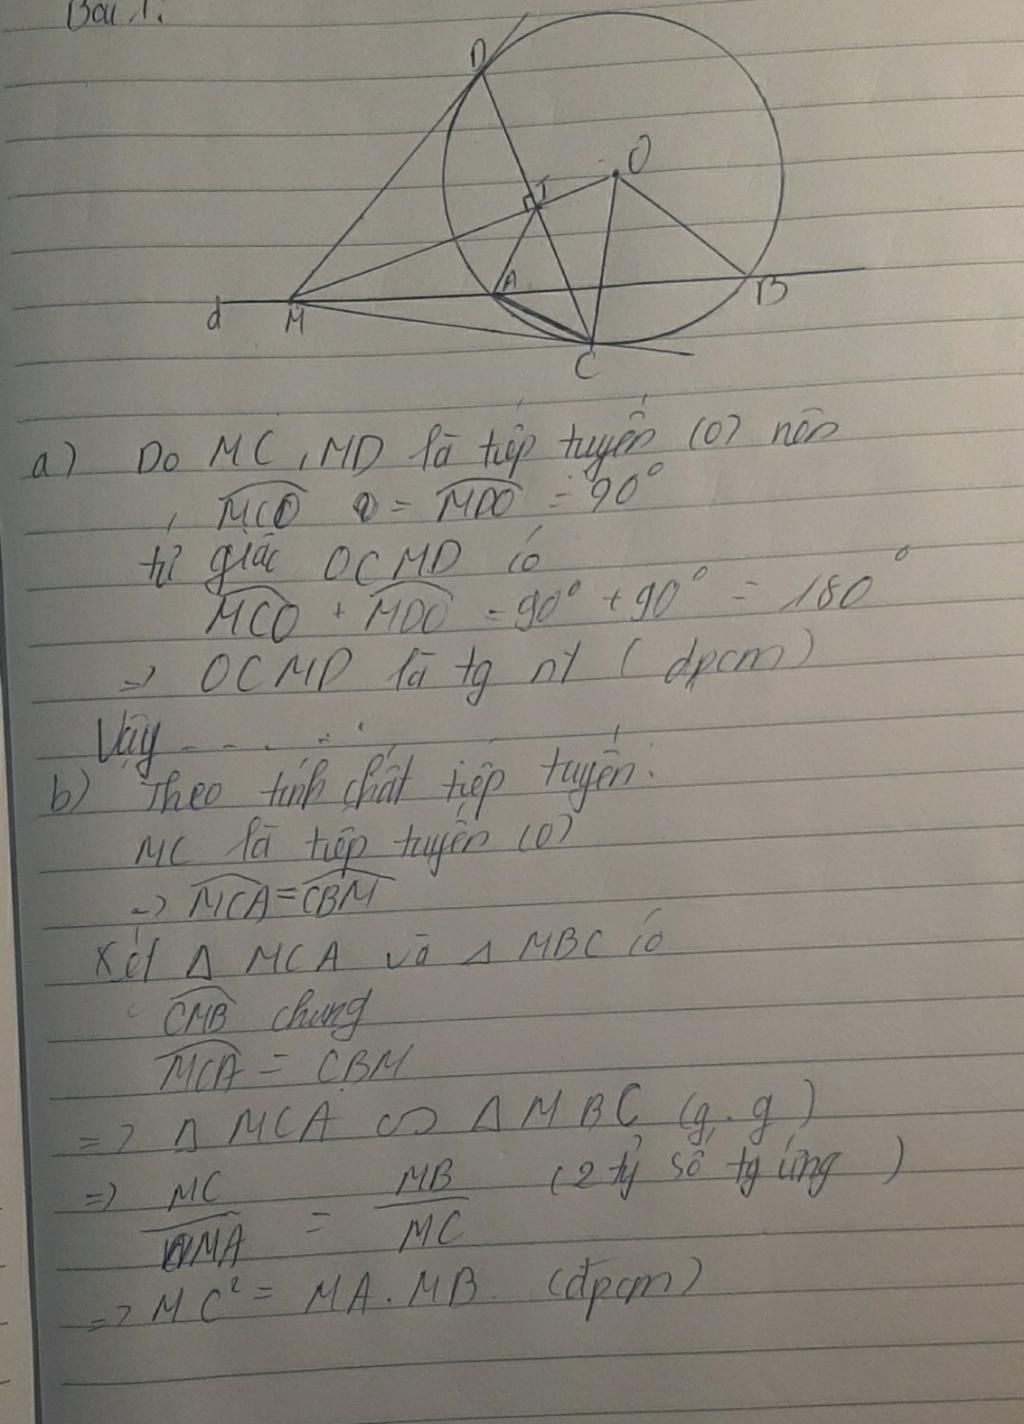 Bài 1:
D
O
I
A
B
d
M
C
a) Do MC, MD là tiếp tuyến (O) nên
MCO = MDO = 90°
tứ giác OCMD có
MCO + MDO = 90° + 90° = 180°
=> OCMD là tg nt (dpcm)
Vậy - - . . . .
b) Theo tính chất tiếp tuyến:
MC là tiếp tuyến (O)
=> MCA = CBM
Xét Δ MCA và Δ MBC có
CMB chung
MCA = CBM
=> Δ MCA ∽ Δ MBC (g.g)
=> MC/MA = MB/MC (2 tỷ số tg ứng)
=> MC² = MA.MB (đpcm)